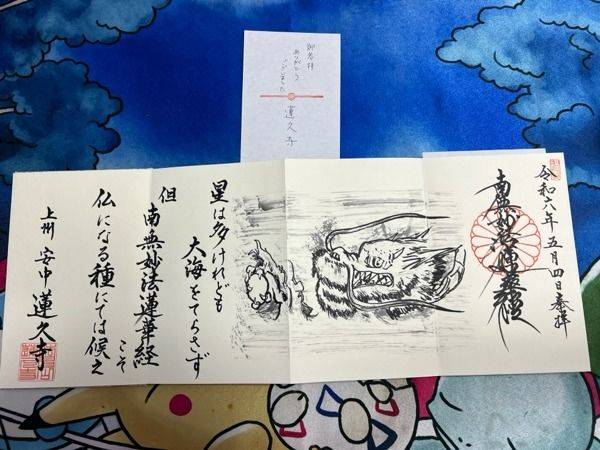 御参拝
ありがとう
ございました
蓮久寺
令和六年五月四日奉拝
南無妙法蓮華経
星は多けれども
大海をてらさず
但
南無妙法蓮華経
こそ
仏になる種にては候之
上州安中蓮久寺